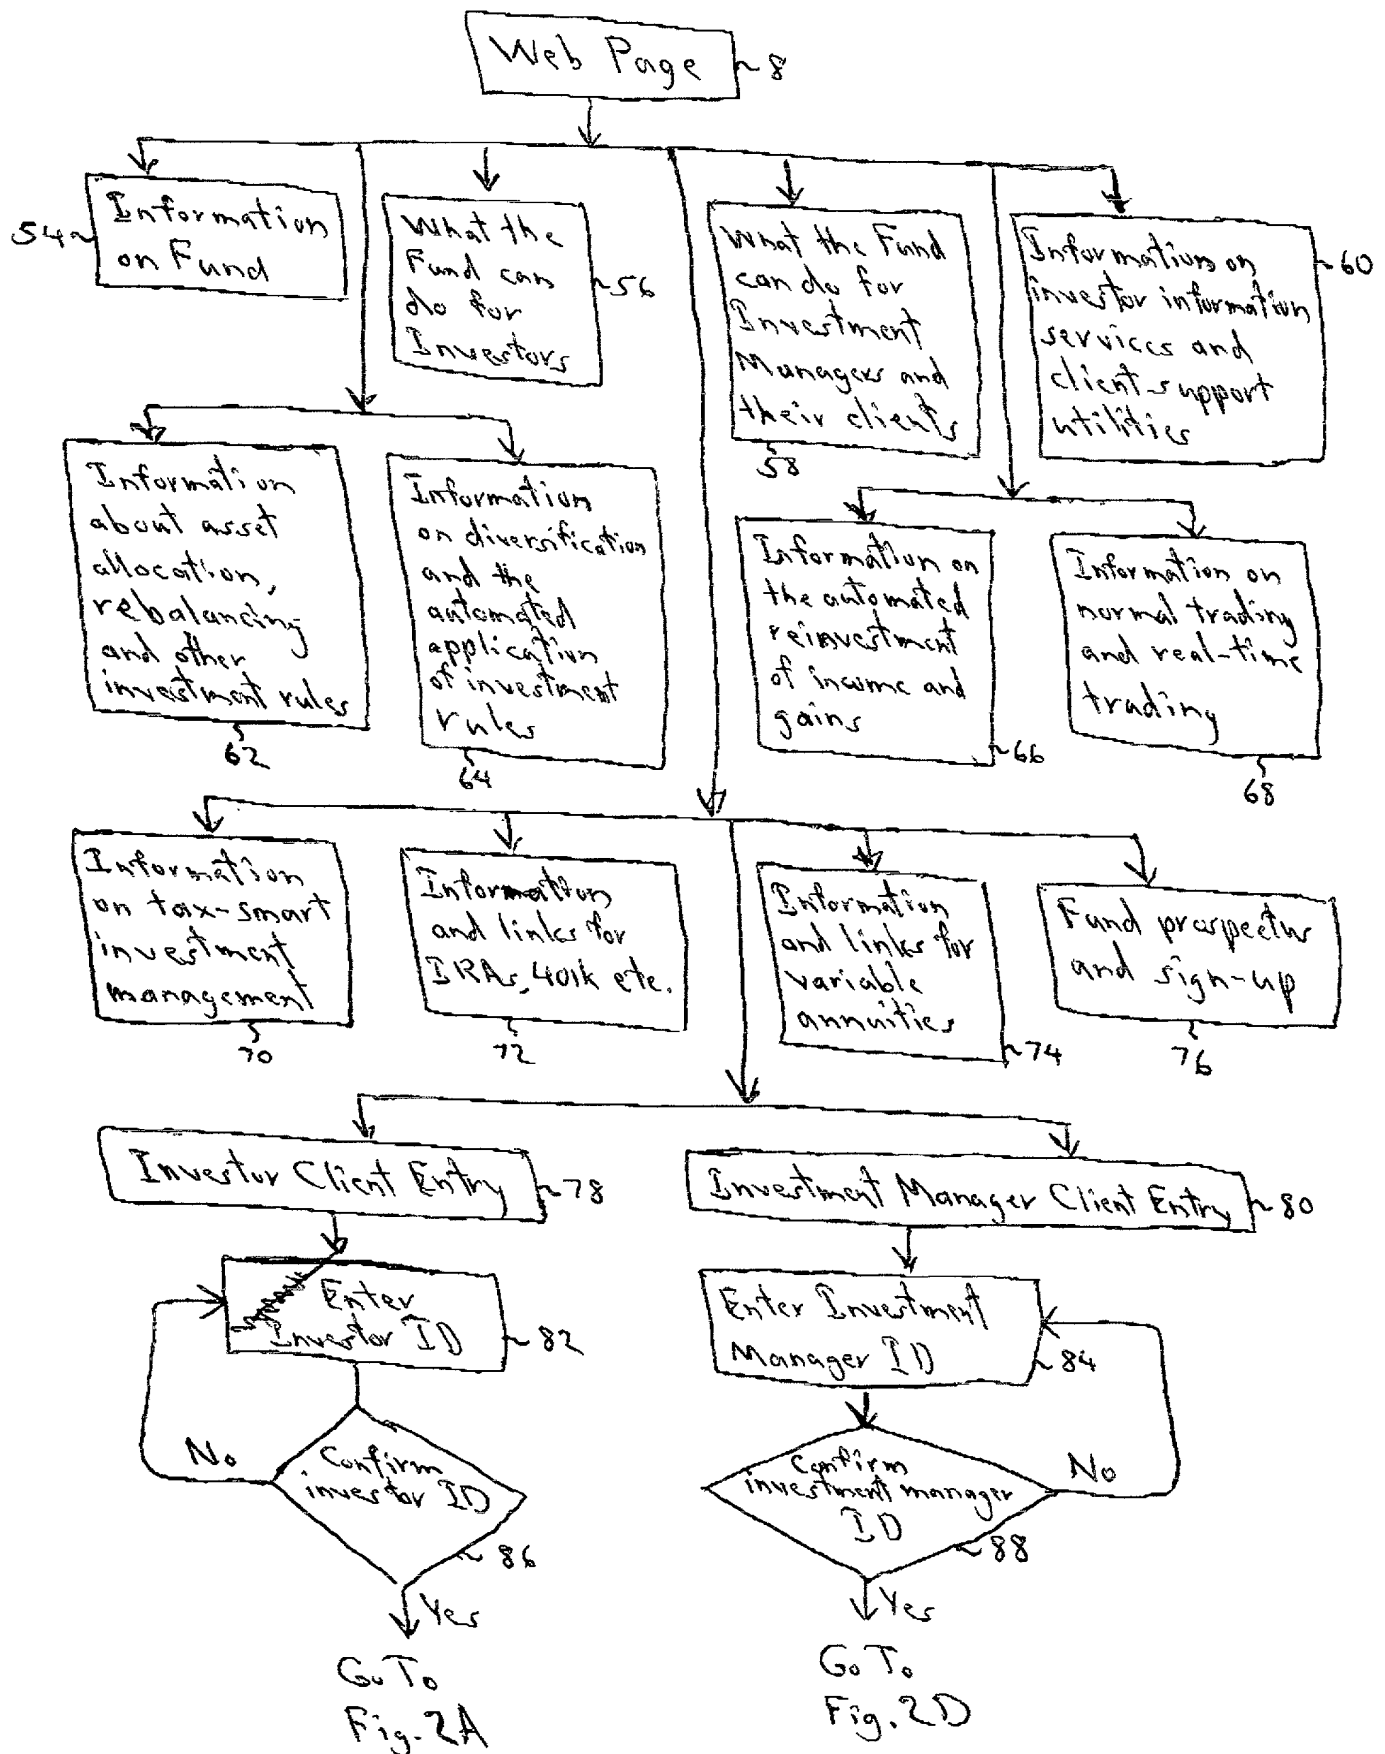 Web Page
8
54
Information
on Fund
What the
Fund can
do for
Investors
56
What the Fund
can do for
Investment
Managers and
their clients
58
Information on
investor information
services and
client-support
utilities
60
Information
about asset
allocation,
rebalancing
and other
investment rules
62
Information
on diversification
and the
automated
application
of investment
rules
64
Information on
the automated
reinvestment
of income and
gains
66
Information on
normal trading
and real-time
trading
68
Information
on tax-smart
investment
management
70
Information
and links for
IRAs, 401k etc.
72
Information
and links for
variable
annuities
74
Fund prospectus
and sign-up
76
Investor Client Entry
78
Investment Manager Client Entry
80
Enter
Investor ID
82
Enter Investment
Manager ID
84
No
Confirm
investor ID
86
Yes
Go To
Fig. 2A
Confirm
investment manager
ID
No
88
Yes
Go To
Fig. 2D